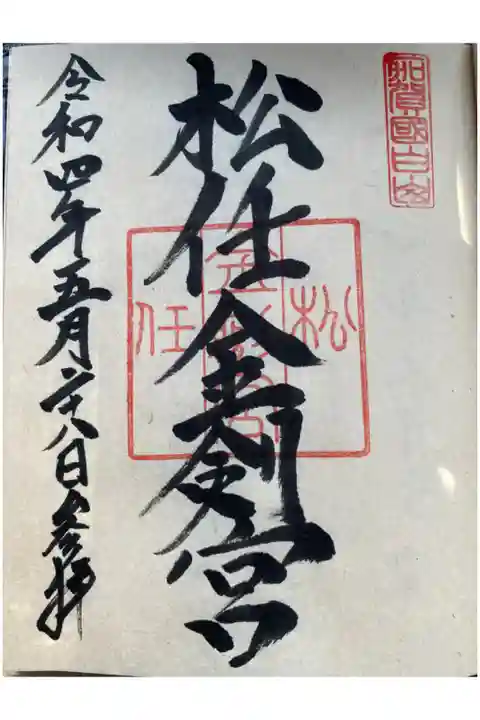 加賀國白山
松任金剱宮
松任
金剱宮
令和四年五月二十八日参拝